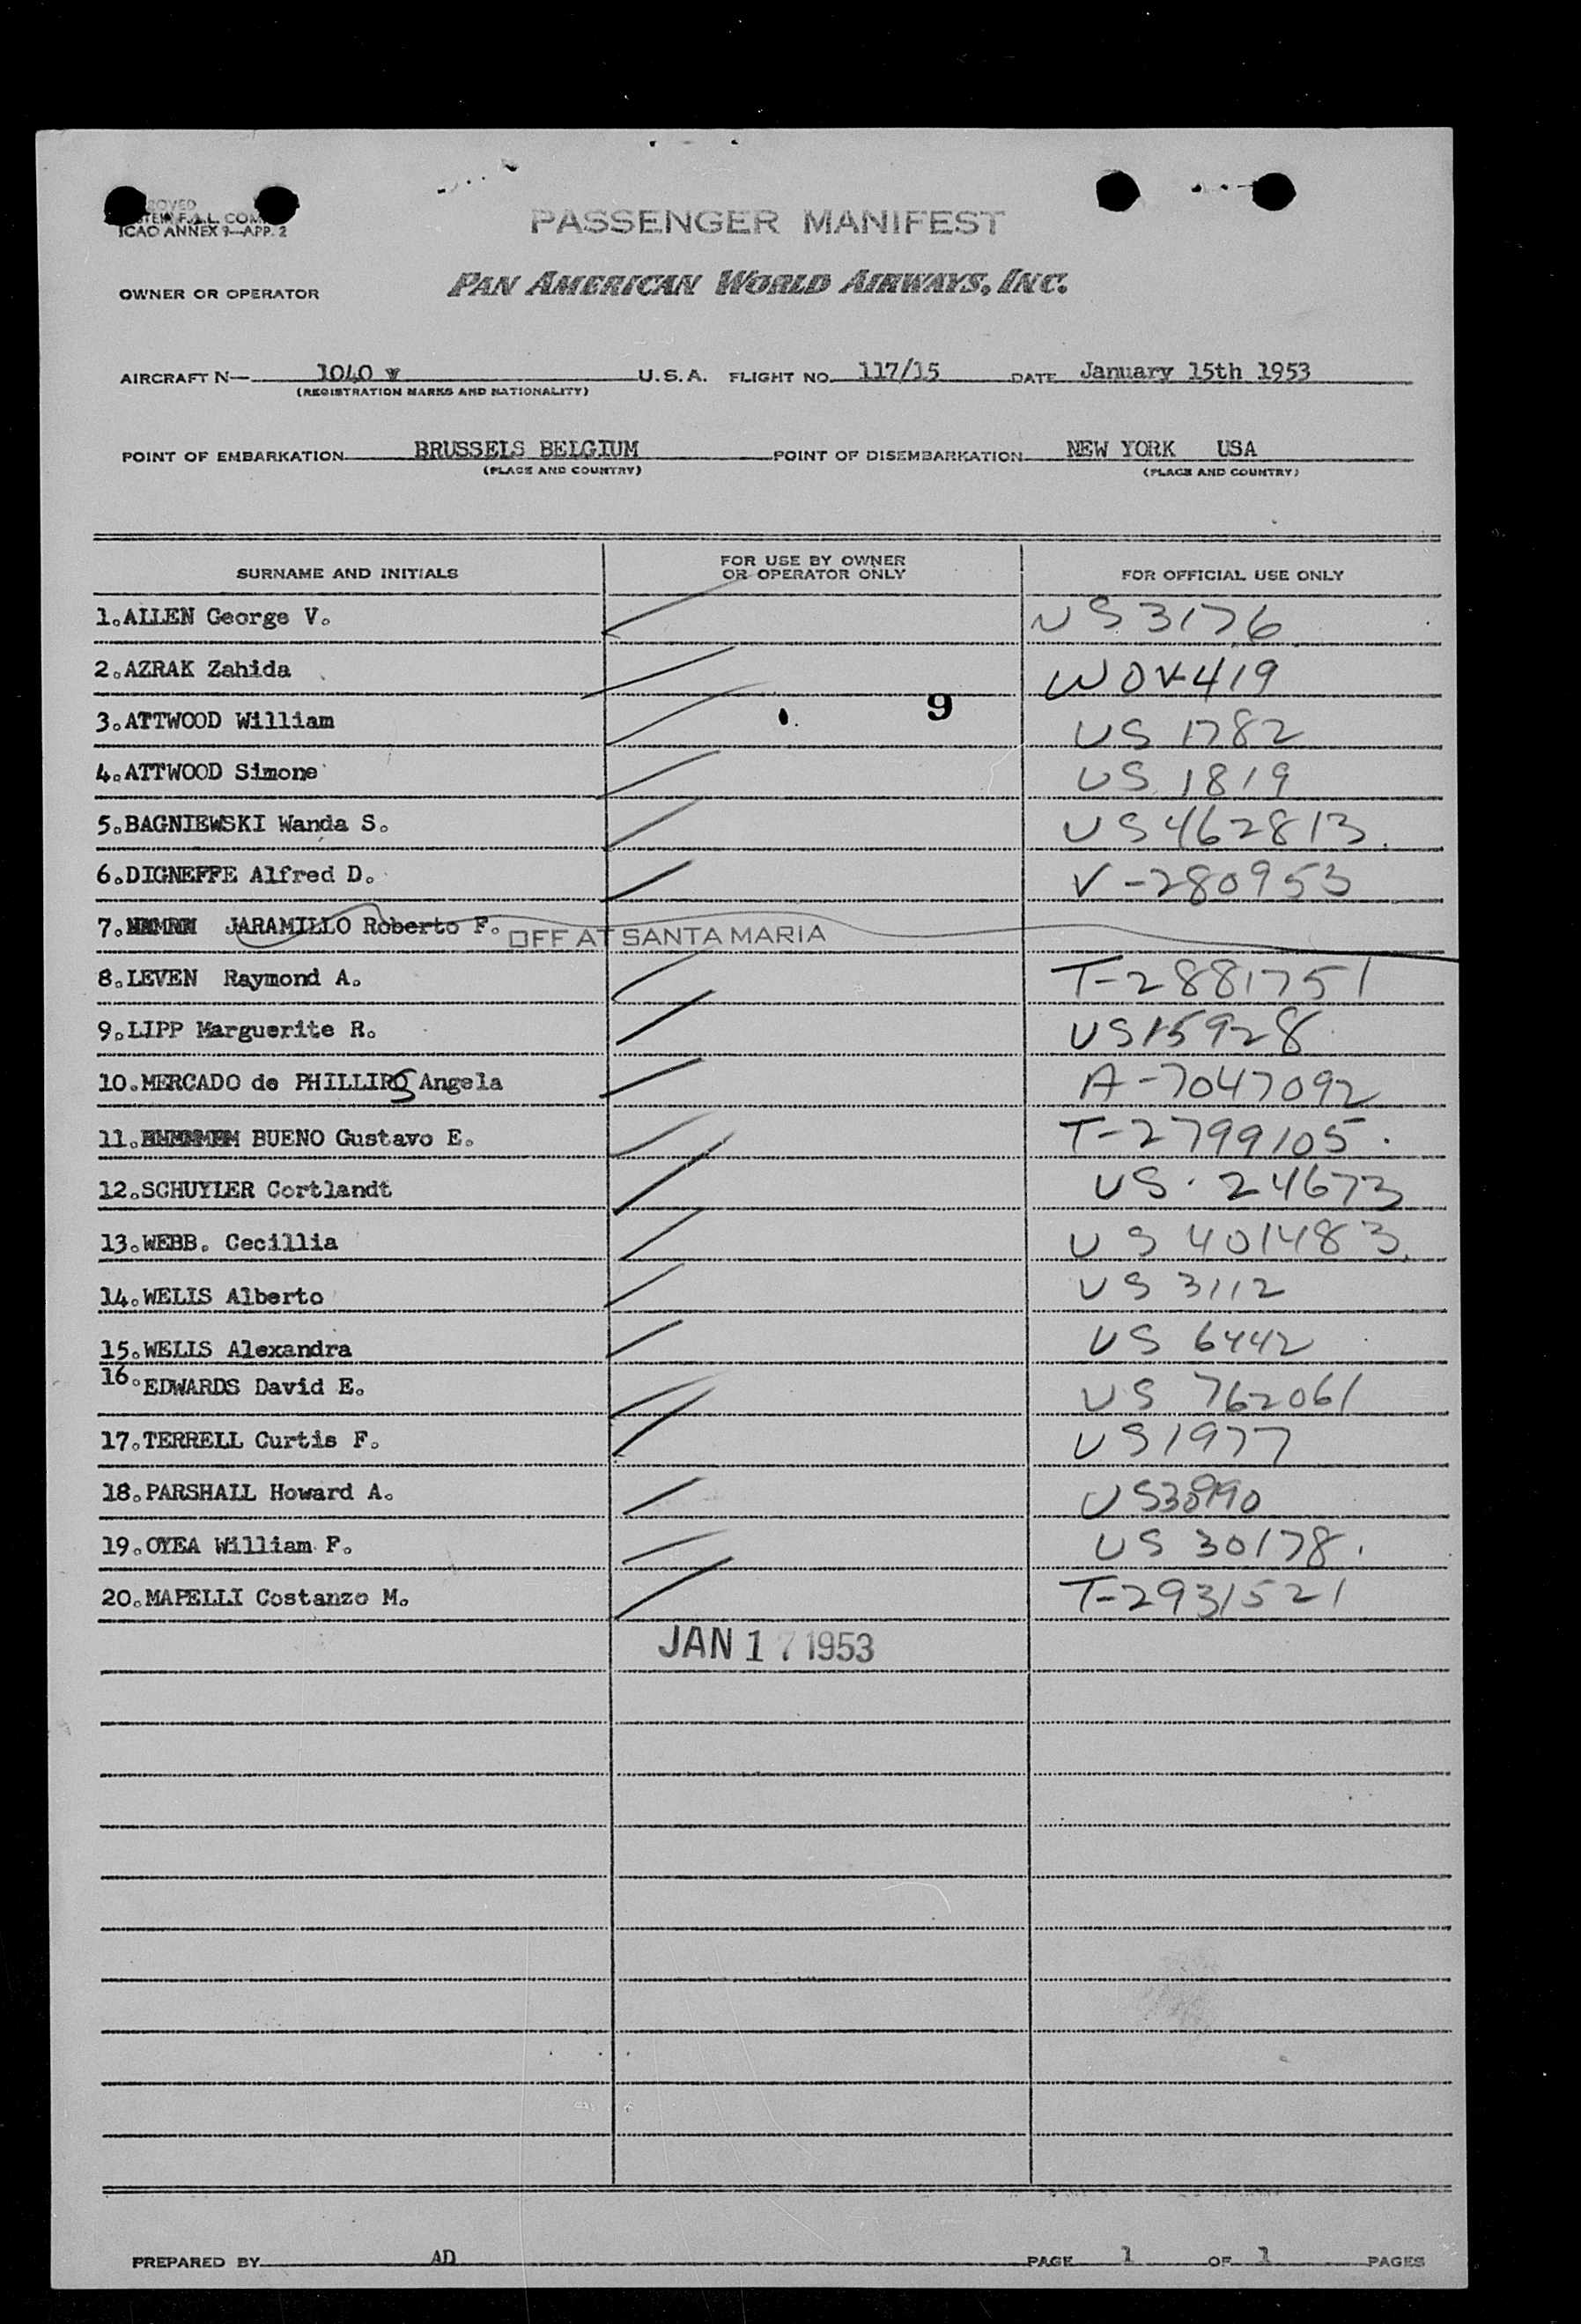 ICAO ANNEX 9—APP. 2
PASSENGER MANIFEST
OWNER OR OPERATOR PAN AMERICAN WORLD AIRWAYS, INC.
AIRCRAFT N— 1040 v U.S.A. FLIGHT NO. 117/15 DATE January 15th 1953
(REGISTRATION MARKS AND NATIONALITY)
POINT OF EMBARKATION BRUSSELS BELGIUM POINT OF DISEMBARKATION NEW YORK USA
(PLACE AND COUNTRY) (PLACE AND COUNTRY)
SURNAME AND INITIALS FOR USE BY OWNER OR OPERATOR ONLY FOR OFFICIAL USE ONLY
1.ALLEN George V. US 3176
2.AZRAK Zahida WOV419
9
3.ATTWOOD William US 1782
4.ATTWOOD Simone US 1819
5.BAGNIEWSKI Wanda S. US 462813
6.DIGNEFFE Alfred D. V-280953
7. JARAMILLO Roberto F. OFF AT SANTA MARIA
8.LEVEN Raymond A. T-2881751
9.LIPP Marguerite R. US 15928
10.MERCADO de PHILLIPS Angela A-7047092
11. BUENO Gustavo E. T-2799105
12.SCHUYLER Cortlandt US. 24673
13.WEBB. Cecillia US 401483
14.WELIS Alberto US 3112
15.WELIS Alexandra US 6442
16.EDWARDS David E. US 762061
17.TERRELL Curtis F. US 1977
18.PARSHALL Howard A.
19.OYEA William F. US 30178.
20.MAPELLI Costanzo M. T-2931521
JAN 17 1953
PREPARED BY AD PAGE 1 OF 1 PAGES